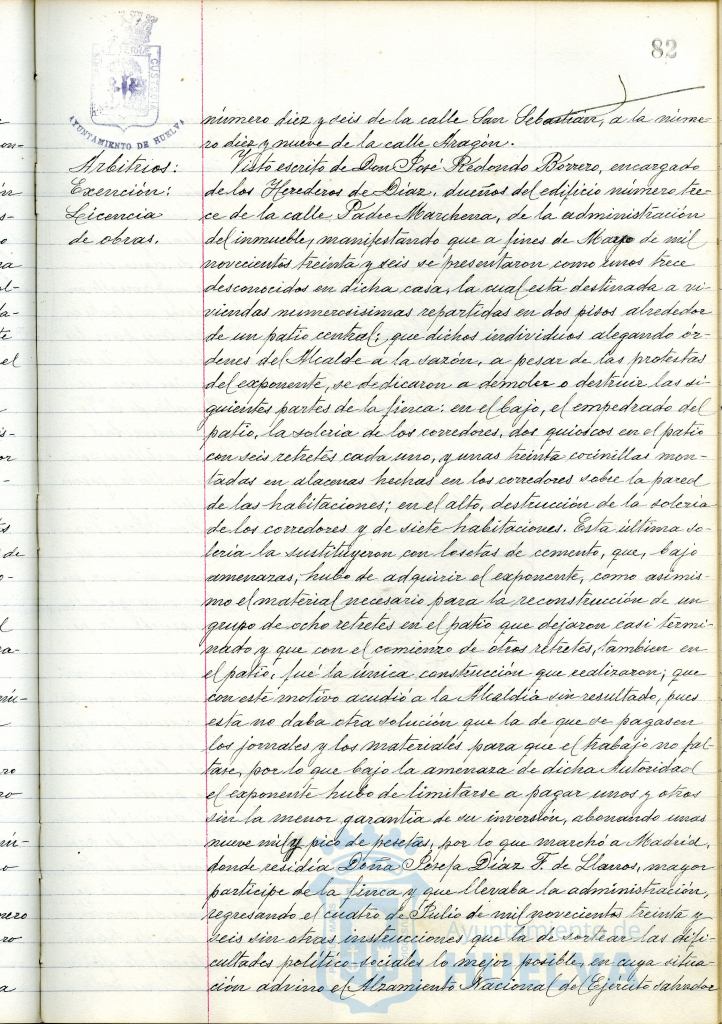 82
AYUNTAMIENTO DE HUELVA
número diez y seis de la calle San Sebastián, a la núme-
ro diez y nueve de la calle Aragón.
Arbitrios:
Exención:
Licencia
de obras.
Visto escrito de Don José Redondo Borrero, encargado
de los Herederos de Díaz, dueños del edificio número tre-
ce de la calle Padre Marchena, de la administración
del inmueble, manifestando que a fines de Mayo de mil
novecientos treinta y seis se presentaron como unos trece
desconocidos en dicha casa, la cual está destinada a vi-
viendas numerosisimas repartidas en dos pisos alrededor
de un patio central; que dichos individuos alegando ór-
denes del Alcalde a la sazón, a pesar de las protestas
del exponente, se dedicaron a demoler o destruir las si-
guientes partes de la finca: en el bajo, el empedrado del
patio, la soleria de los corredores, dos quioscos en el patio
con seis retretes cada uno, y unas treinta cocinillas mon-
tadas en alacenas hechas en los corredores sobre la pared
de las habitaciones; en el alto, destrucción de la soleria
de los corredores y de siete habitaciones. Esta última so-
leria la sustituyeron con losetas de cemento, que, bajo
amenazas, hubo de adquirir el exponente, como asimis-
mo el material necesario para la reconstrucción de un
grupo de ocho retretes en el patio que dejaron casi termi-
nado y que con el comienzo de otros retretes, tambien en
el patio, fué la única construcción que realizaron; que
con este motivo acudió a la Alcaldía sin resultado, pues
esta no daba otra solución que la de que se pagasen
los jornales y los materiales para que el trabajo no fal-
tase, por lo que bajo la amenaza de dicha Autoridad
el exponente hubo de limitarse a pagar unos y otros
sin la menor garantia de su inversión, abonando unas
nueve mil y pico de pesetas, por lo que marchó a Madrid,
donde residía Doña Josefa Díaz F. de Llanos, mayor
participe de la finca y que llevaba la administración,
regresando el cuatro de Julio de mil novecientos treinta y
seis sin otras instrucciones que la de sortear las difi-
cultades politico-sociales lo mejor posible, en cuya situa-
ción advino el Alzamiento Nacional del Ejército salvador
Ayuntamiento de
HUELVA